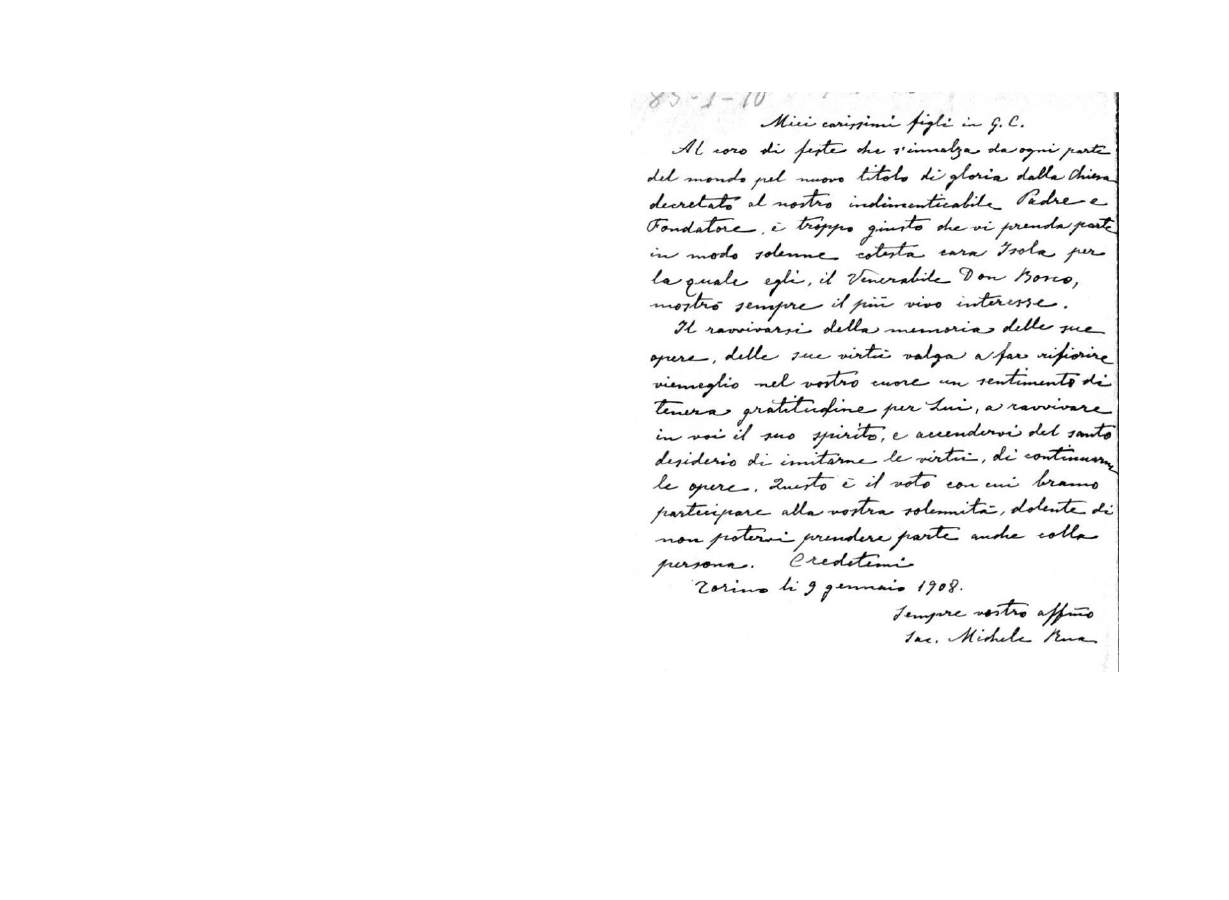 83-1-10
Miei carissimi figli in G. C.
Al coro di feste che s'innalza da ogni parte
del mondo pel nuovo titolo di gloria dalla Chiesa
decretato al nostro indimenticabile Padre e
Fondatore, è troppo giusto che vi prenda parte
in modo solenne cotesta cara Isola per
la quale egli, il Venerabile Don Bosco,
mostrò sempre il più vivo interesse.
Il ravvivarsi della memoria delle sue
opere, delle sue virtù valga a far rifiorire
viemeglio nel vostro cuore un sentimento di
tenera gratitudine per Lui, a ravvivare
in voi il suo spirito, e accendervi del santo
desiderio di imitarne le virtù, di continuarne
le opere. Questo è il voto con cui bramo
participare alla vostra solennità, dolente di
non potervi prendere parte anche colla
persona. Credetemi
Torino li 9 gennaio 1908.
Sempre vostro affmo
Sac. Michele Rua